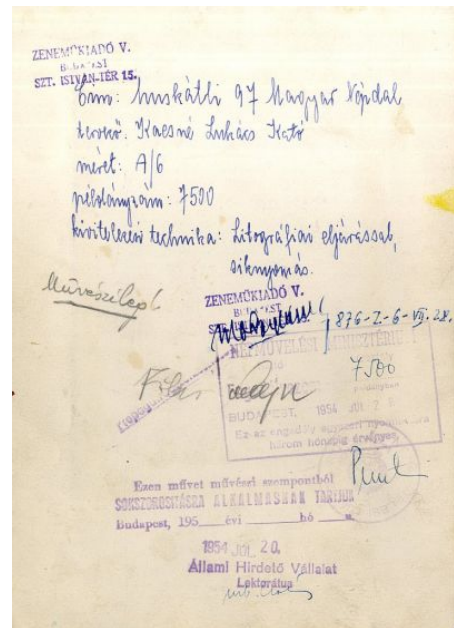 ZENEMŰKIADÓ V.
BUDAPEST
SZT. ISTVÁN-TÉR 15.
Cím: Muskátli 97 Magyar Népdal
tervező: Kacsné Lukács Kató
méret: A/6
példányszám: 7500
kivitelezési technika: Litográfiai eljárással,
síknyomás.
ZENEMŰKIADÓ V.
BUDAPEST
876-Z-6-VII.28.
NÉPMŰVELÉSI MINISZTÉRIUM
7.500
BUDAPEST, 1954 JUL 2
Ez az engedély egyszeri nyomásra
három hónapig érvényes
Ezen művet művészi szempontból
SOKSZOROSÍTÁSRA ALKALMASNAK TARTJUK
Budapest, 195 évi hó n.
1954 JUL 20.
Állami Hirdető Vállalat
Lektorátus